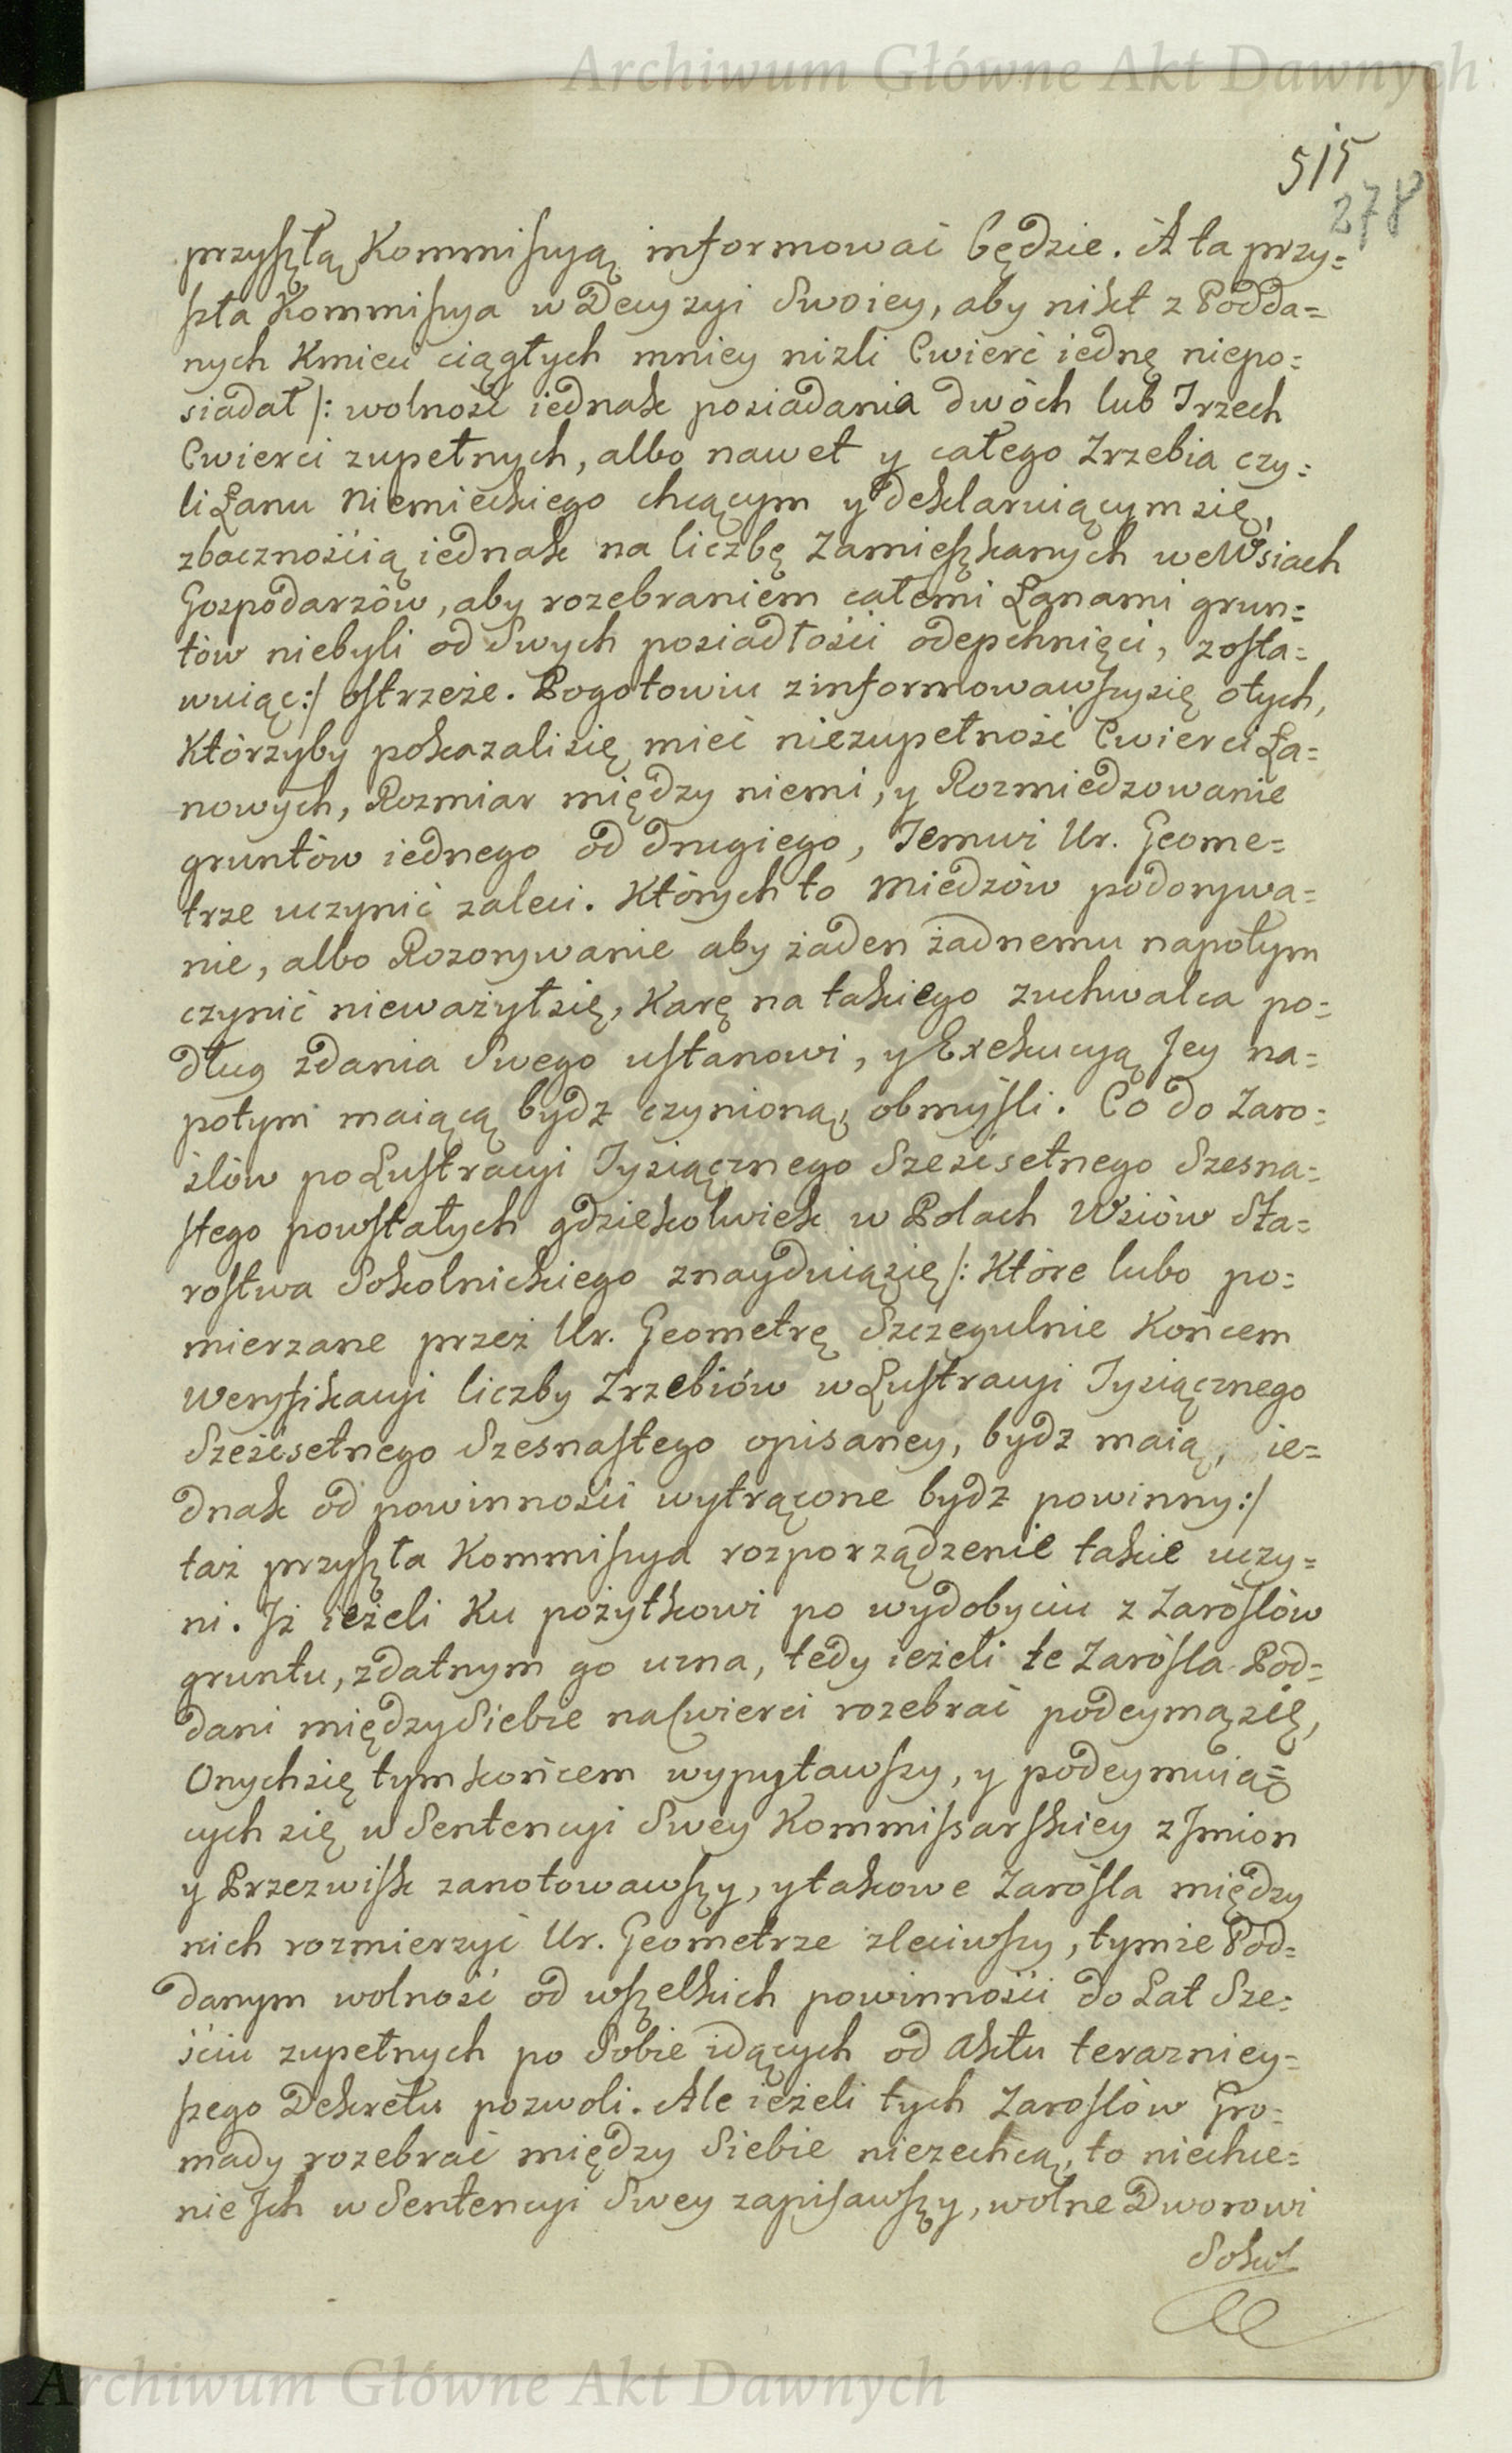 Archiwum Główne Akt Dawnych
515
278
przyszłą Kommissyą informować będzie. A ta przy=
szła Kommissya w Decyzyi Swoiey, aby nikt z Podda=
nych Kmieci ciągłych mniey niżli Cwierć iednę niepo=
siadał /: wolność iednak posiadania dwóch lub Trzech
Cwierci zupełnych, albo nawet y całego Zrzebia czy=
li Łanu Niemieckiego chcącym y deklaruiącym się,
zbacznością iednak na liczbę Zamieszkanych we Wsiach
Gospodarzów, aby rozebraniem całemi Łanami grun=
tów niebyli od Swych posiadłości odepchnięci, zosta=
wuiąc:/ ostrzeże. Pogotowiu zinformowawszy się o tych,
Którzyby pokazali się mieć niezupełność Cwierci Ła=
nowych, Rozmiar między niemi, y Rozmiedzowanie
gruntów iednego od drugiego, Temuż Ur. Geome=
trze uczynić zaleci. Których to Miedzów podorywa=
nie, albo Rozorywanie aby żaden żadnemu napotym
czynić nieważył się, Karę na takiego zuchwalca po=
dług zdania Swego ustanowi, y Exekucyą Jey na=
potym maiącą bydz czynioną, obmyśli. Co do Zaro=
ślów po Lustracyi Tysiącznego Sześćsetnego Szesna=
stego powstałych gdziekolwiek w Polach Wsiów Sta=
rostwa Sokolnickiego znayduią się /: Które lubo po=
mierzane przez Ur. Geometrę Szczegulnie Końcem
Weryfikacyi liczby Zrzebiów w Lustracyi Tysiącznego
Sześćsetnego Szesnastego opisaney, bydz maią, ie=
dnak od powinności wytrącone bydz powinny:/
taż przyszła Kommissya rozporządzenie takie uczy=
ni. Iż ieżeli Ku pożytkowi po wydobyciu z Zaroślów
gruntu, zdatnym go uzna, tedy ieżeli te Zarośla Pod=
dani między Siebie na Cwierci rozebrać podeymą się,
Onych się tym końcem wypytawszy, y podeymuią=
cych się w Sentencyi Swey Kommissarskiey z Imion
y Przezwisk zanotowawszy, y takowe Zarośla między
nich rozmierzyć Ur. Geometrze zleciwszy, tymże Pod=
danym wolność od wszelkich powinności do Lat Sze=
ściu zupełnych po Sobie idących od Aktu terazniey=
szego Dekretu pozwoli. Ale ieżeli tych Zaroslów Gro=
mady rozebrać między Siebie niezechcą, to niechce=
nie Ich w Sentencyi Swey zapisawszy, wolne Dworowi
Sokol
Archiwum Główne Akt Dawnych